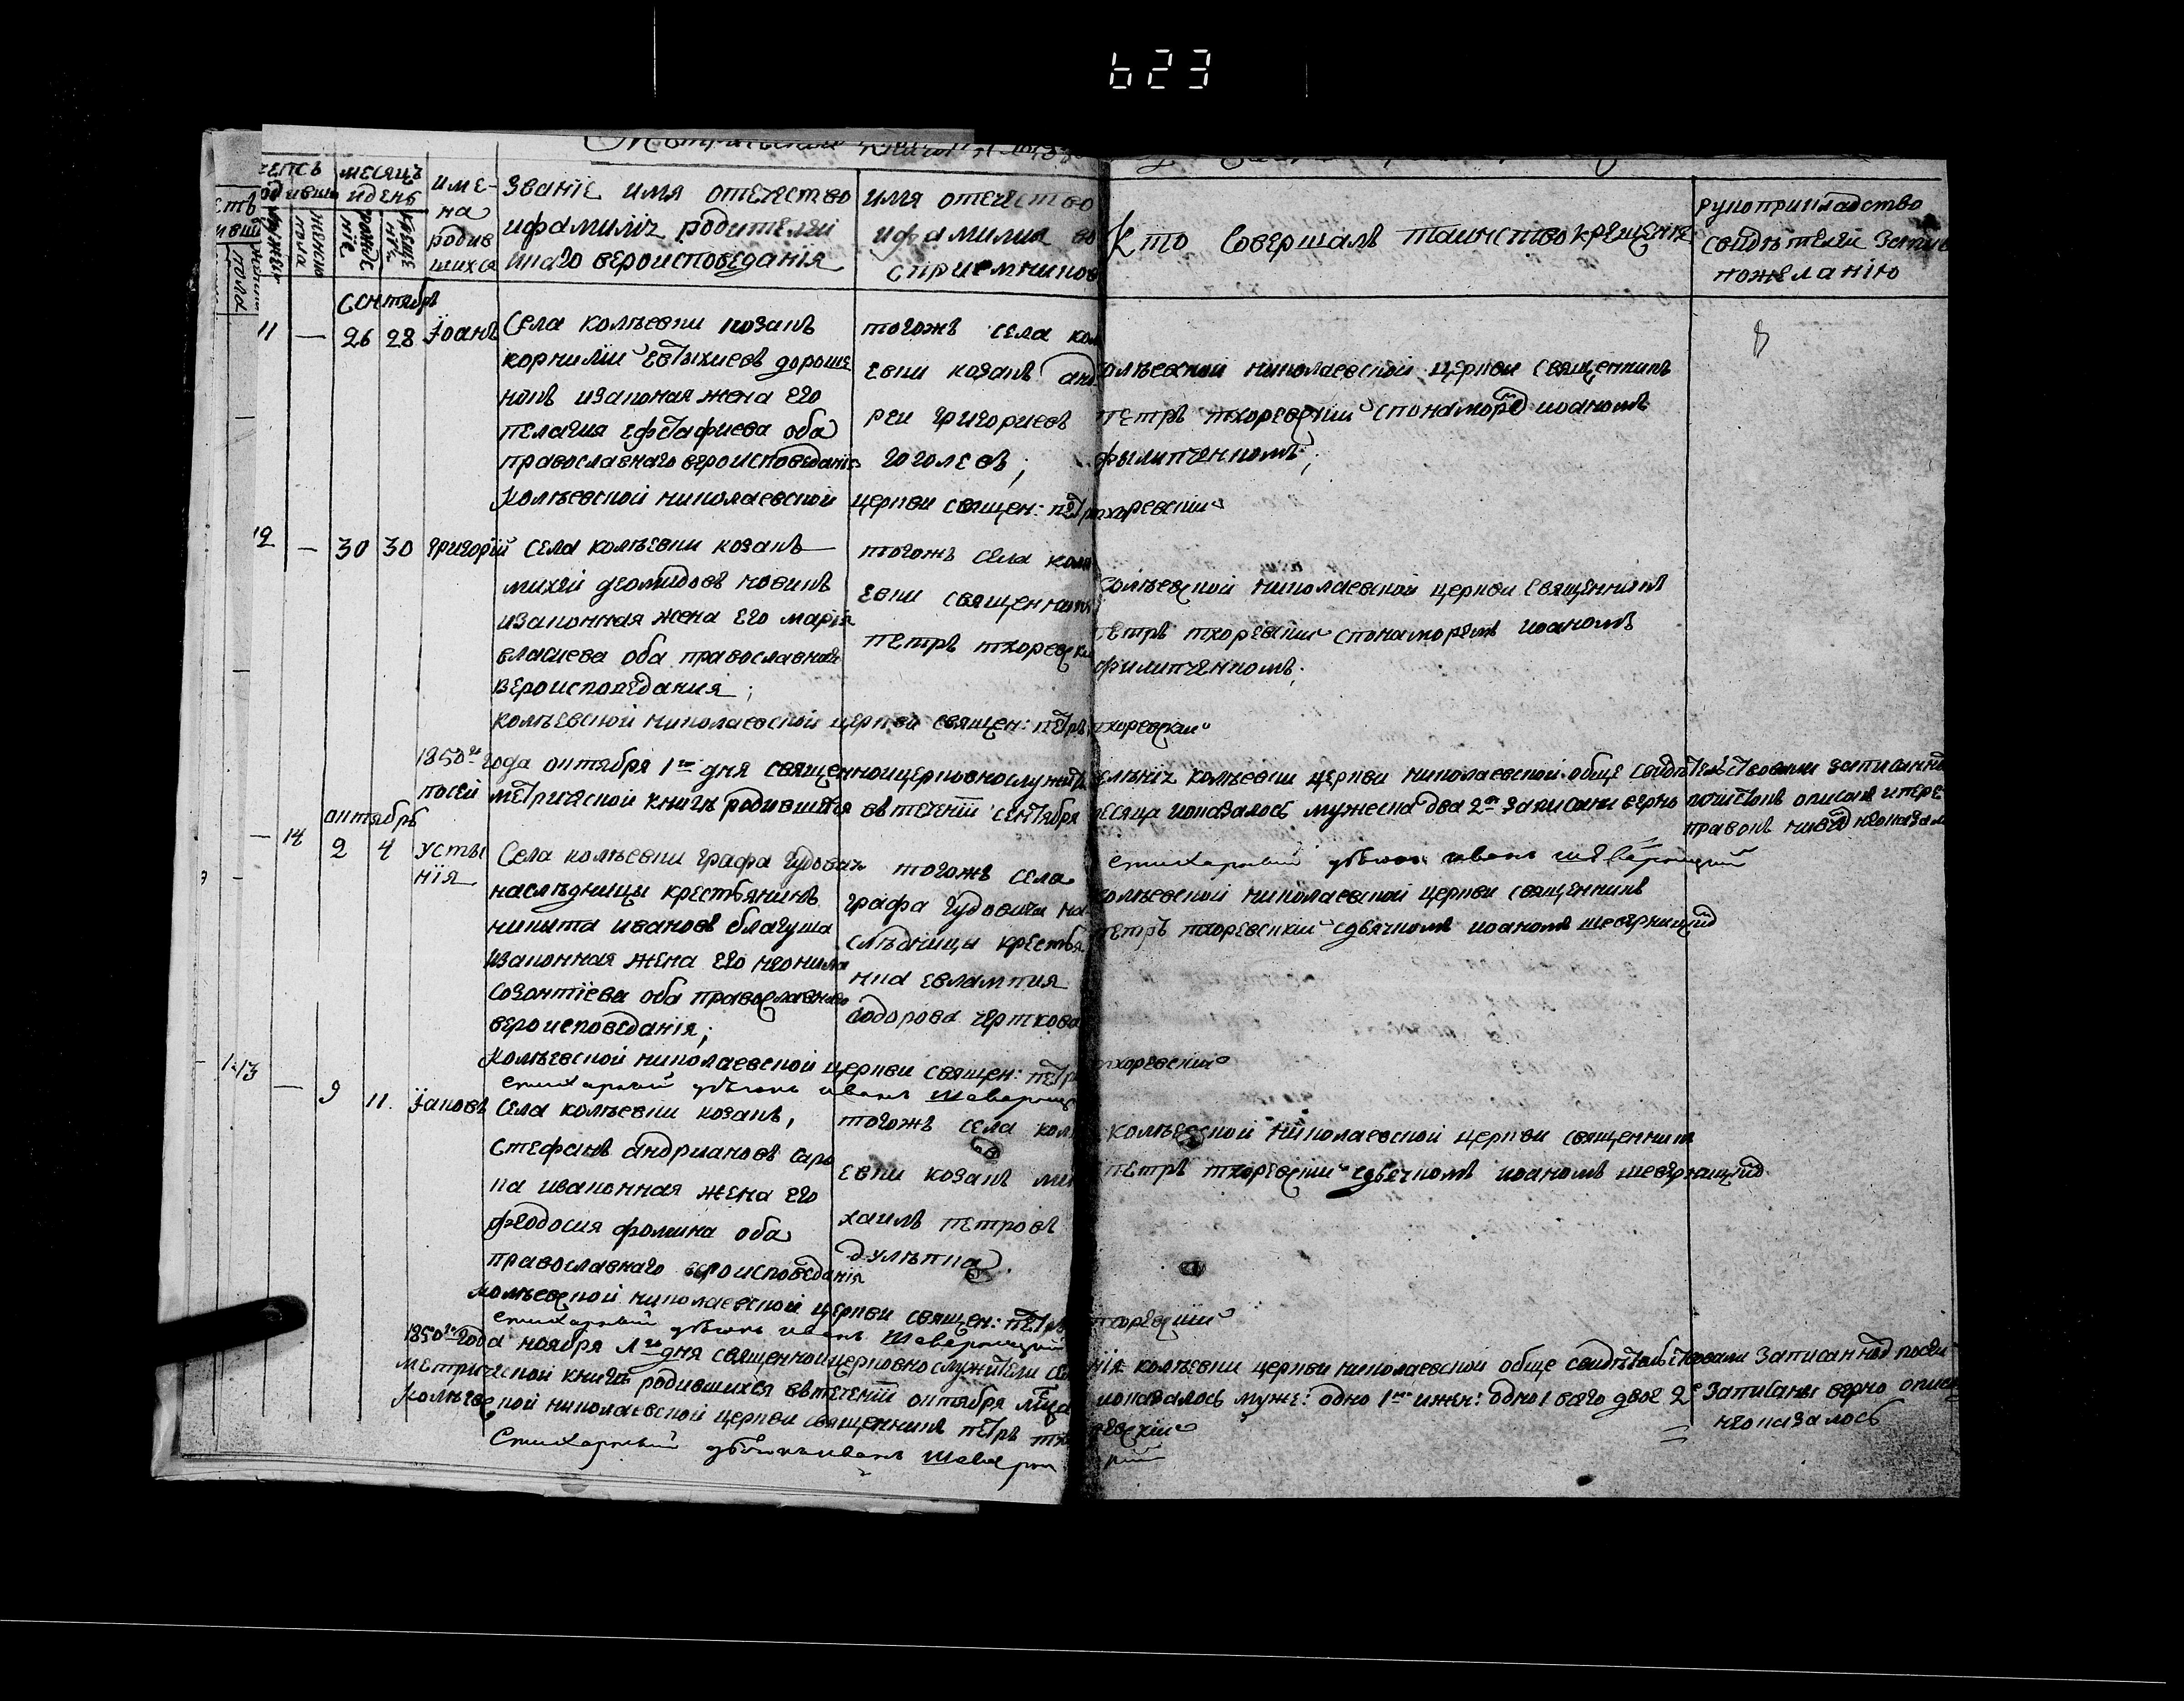 623
Метрической книги
месяцъ
и день
име-
на
родив
шихся
Званіе имя отечество
ифамиліи родителей
инаго вероисповеданія
имя отечество
ифамилия во
сприемниковъ
Кто Совершалъ таинство крещенія
рукоприкладство
свидѣтелей
пожеланію
Сентябрь
11 — 26 28 Іоанъ
Села колѣевки козакъ
корнилій Евтихиевъ дороше
нокъ изаконая жена его
пелагия ефстафиева оба
православнаго вероисповеданія
тогожъ села кол
евки козакъ анд
реи григориевъ
гоголевъ;
колѣевской николаевской церкви священникъ
петръ тхоревскій спонамаремъ иоаномъ
филипченкомъ;
8
Колѣевской николаевской церкви священ: петръ тхоревскій
12 — 30 30 григорій
Села колѣевки козакъ
михей деомидовъ новикъ
изаконная жена его марія
власиева оба православнаго
вероисповедания;
тогожъ села колѣ
евки священникъ
петръ тхоревскій
колѣевской николаевской церкви священникъ
петръ тхоревскій спонамаремъ иоаномъ
филипченкомъ;
колѣевской николаевской церкви священ: петръ тхоревскій
1850го года октября 1го дня священноицерковнослужители селѣніи колѣевки церкви николаевской обще свидѣтельствовали записанно
посей метрической книгѣ родившихся втечении сентября месяца иоказалось мужеска два 2 записани верно почистокъ описокъ ипере
правокъ
октябрь
— 14 2 4 усты
нія
Села колѣевки графа гудовича
наследницы крестьянинъ
никита ивановъ благуша
изаконная жена его неонила
Созонтіева оба православнаго
вероисповеданія;
тогожъ села
графа гудовича на
слѣдницы крестья
нка евлампия
федорова черткова
стихарный дьячокъ иванъ
колѣевской николаевской церкви священникъ
петръ тхоревскій сдьячкомъ иоаномъ шеверницкимъ
Колѣевской николаевской церкви священ: петръ тхоревскій
стихарный дьячокъ иванъ Шеверницкій
13 — 9 11 Іаковъ
Села колѣевки козакъ,
Стефанъ андриановъ
изаконная жена его
феодосия фомина оба
православнаго вероисповеданія
тогожъ села колѣ
евки козакъ ми
хаилъ петровъ
дулѣпка.
колѣевской николаевской церкви священникъ
петръ тхоревскій сдьячкомъ иоаномъ шеверницкимъ
колѣевской николаевской церкви священ: петръ тхоревскій
стихарный дьячокъ иванъ Шеверницкій
1850го года ноября 1го дня священноицерковнослужители селѣнія колѣевки церкви николаевской обще свидѣтельствовали записанное посей
метрической книгѣ родившихся втечении октября мца иоказалось муже: одно 1 ижен: одно 1 всего двое 2е записаны верно описокъ
неоказалось
Колѣевской николаевской церкви священникъ петръ тхоревскій
Стихарный дьячокъ иванъ Шеверницкій